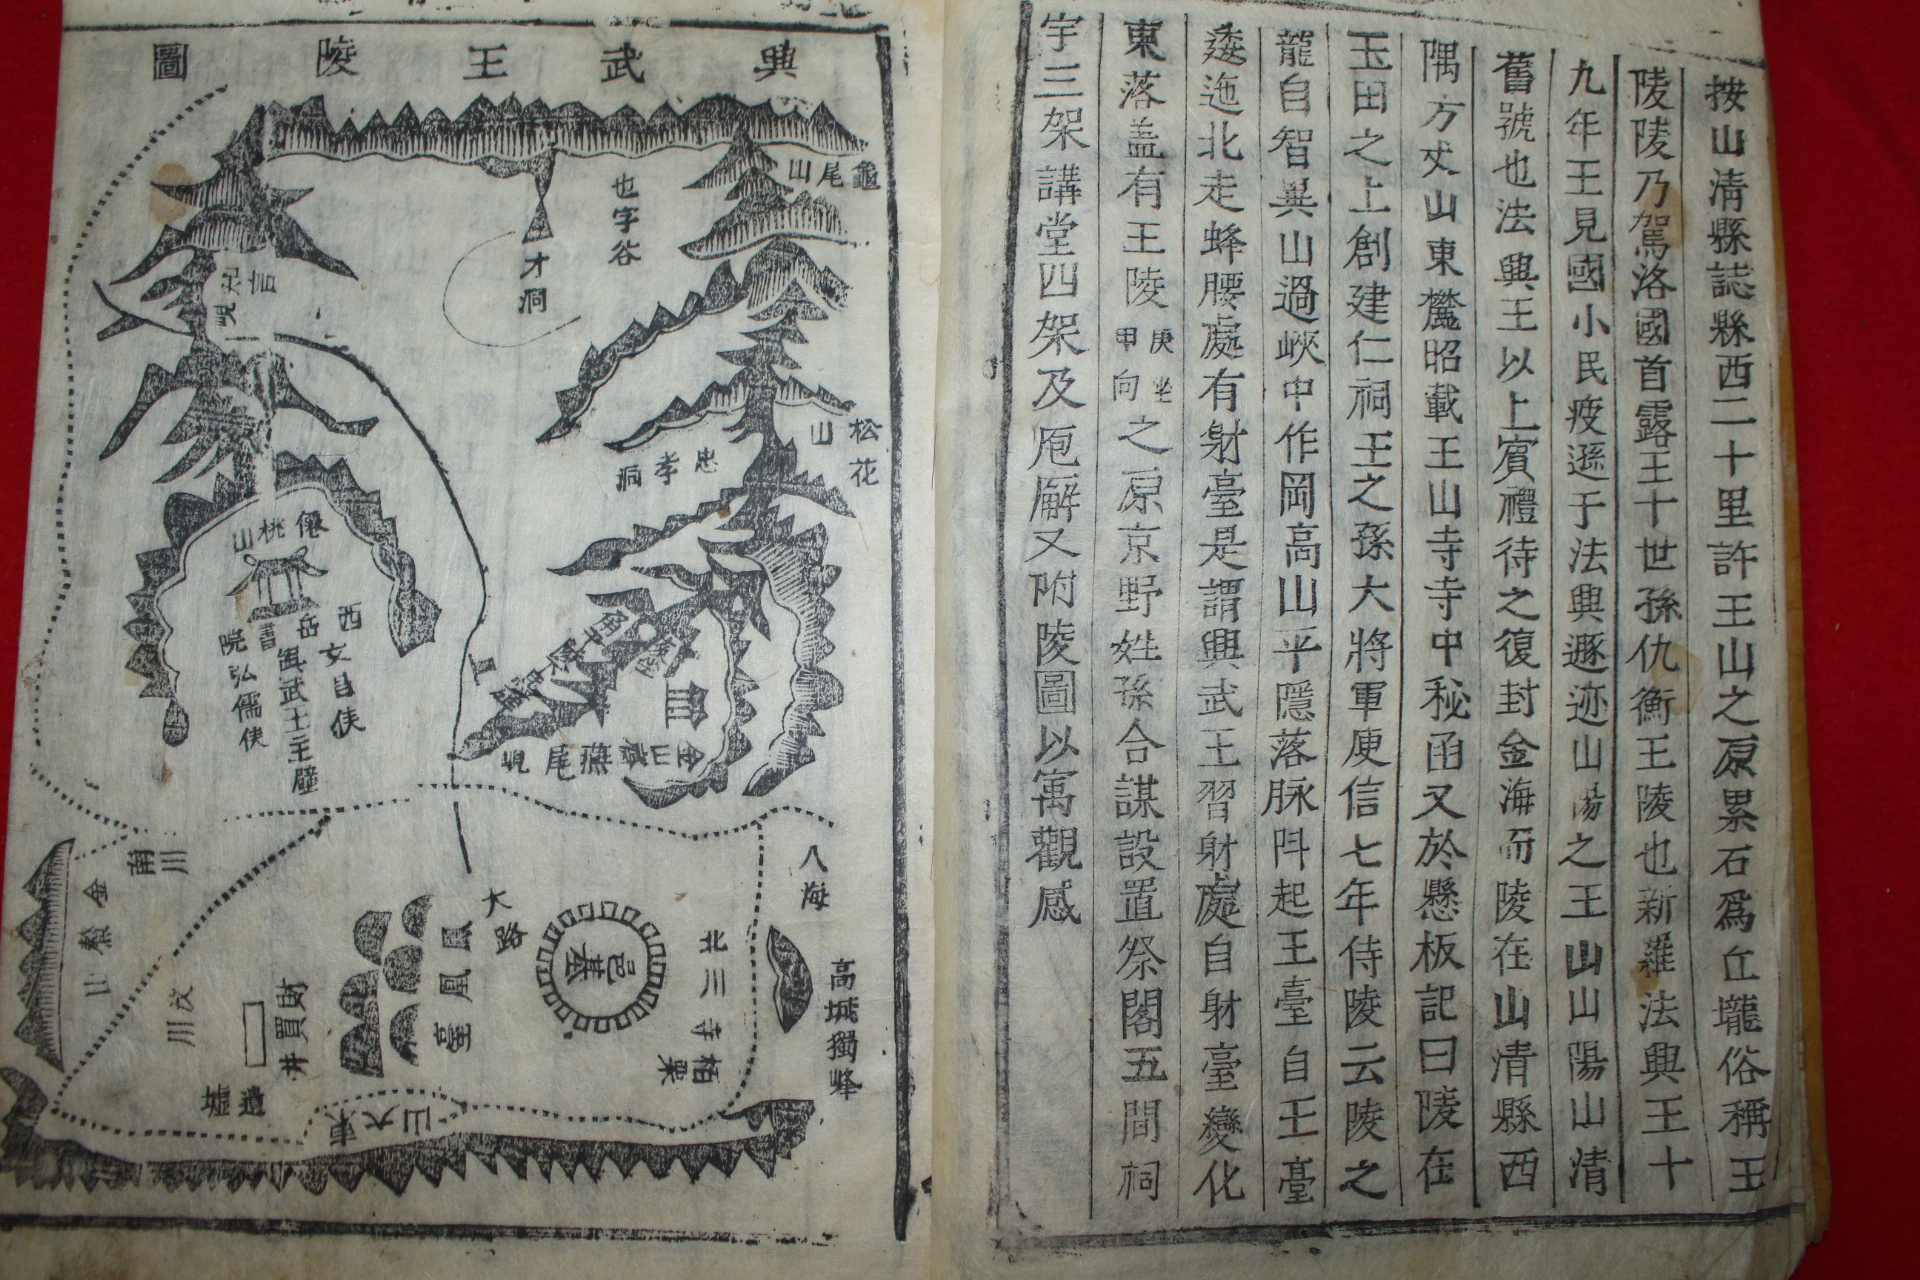 按山清縣誌縣西二十里許王山之原累石爲丘壠俗稱王
陵陵乃駕洛國首露王十世孫仇衡王陵也新羅法興王十
九年王見國小民疲遜于法興遯迹山陽之王山山陽山清
舊號也法興王以上賓禮待之復封金海而陵在山清縣西
隅方丈山東麓昭載王山寺寺中秘函又於懸板記曰陵在
玉田之上創建仁祠王之孫大將軍庾信七年侍陵云陵之
龍自智異山過峽中作岡高山平隱落脉阧起王臺自王臺
逶迤北走蜂腰處有射臺是謂興武王習射處自射臺變化
東落盖有王陵庚坐甲向之原京野姓孫合謀設置祭閣五間祠
宇三架講堂四架及庖廨又附陵圖以寓觀感
興武王陵圖
龜尾山
也字谷
才洞
松花山
忠孝洞
僊桃山
西岳書院
文昌侯
興武王主壁
弘儒侯
金山齋
燕尾峴
八海
高城獨峰
北川
寺
栢栗
大路
邑基
鳳凰臺
南川
金鰲山
汶川
財買井
遺墟
東大山